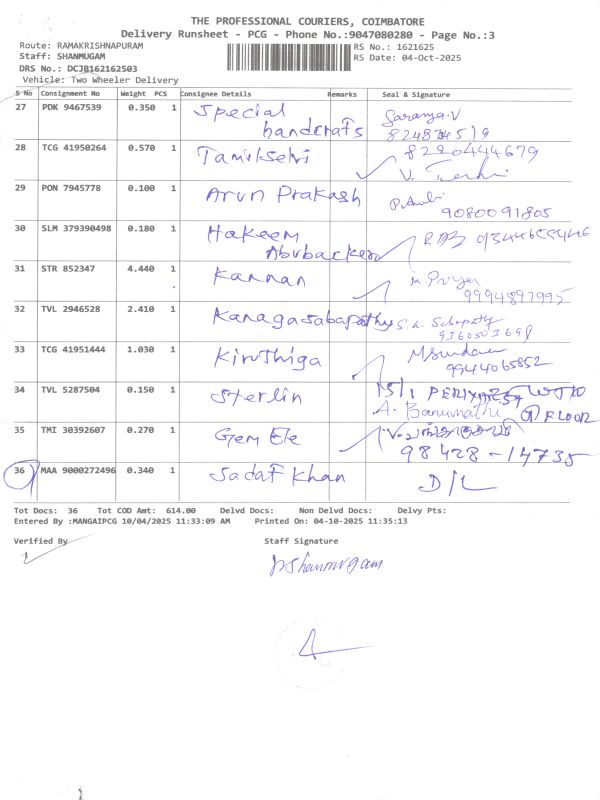 THE PROFESSIONAL COURIERS, COIMBATORE
Delivery Runsheet - PCG - Phone No.:9047080280 - Page No.:3
Route: RAMAKRISHNAPURAM
Staff: SHANMUGAM
DRS No.: DCJB162162503
Vehicle: Two Wheeler Delivery
RS No.: 1621625
RS Date: 04-Oct-2025
S No Consignment No Weight PCS Consignee Details Remarks Seal & Signature
27 PDK 9467539 0.350 1 Special handcrafts Saranya.V
28 TCG 41950264 0.570 1 Tamilselvi 8220444679
29 PON 7945778 0.100 1 Arun Prakash 9080091805
30 SLM 379390498 0.180 1 Hakeem Abubacker
31 STR 852347 4.440 1 Kannan 9994897995
32 TVL 2946528 2.410 1 Kanagasabapathy
33 TCG 41951444 1.030 1 Kiruthiga 9944065852
34 TVL 5287504 0.150 1 Sterlin A. Banumathi FLOOR
35 TMI 30392607 0.270 1 Gem Ele 98428-14735
36 MAA 9000272496 0.340 1 Sadaf Khan D/L
Tot Docs: 36 Tot COD Amt: 614.00 Delvd Docs: Non Delvd Docs: Delvy Pts:
Entered By :MANGAIPCG 10/04/2025 11:33:09 AM Printed On: 04-10-2025 11:35:13
Verified By
Staff Signature
Shanmugam